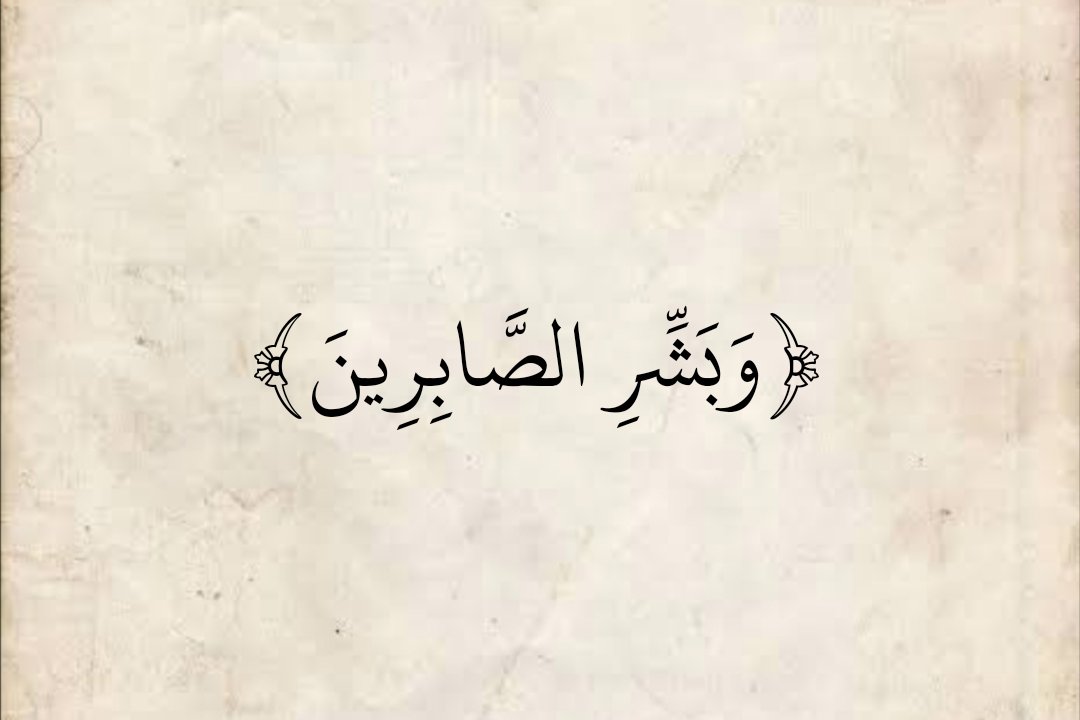 ﴿وَبَشِّرِ الصَّابِرِينَ﴾